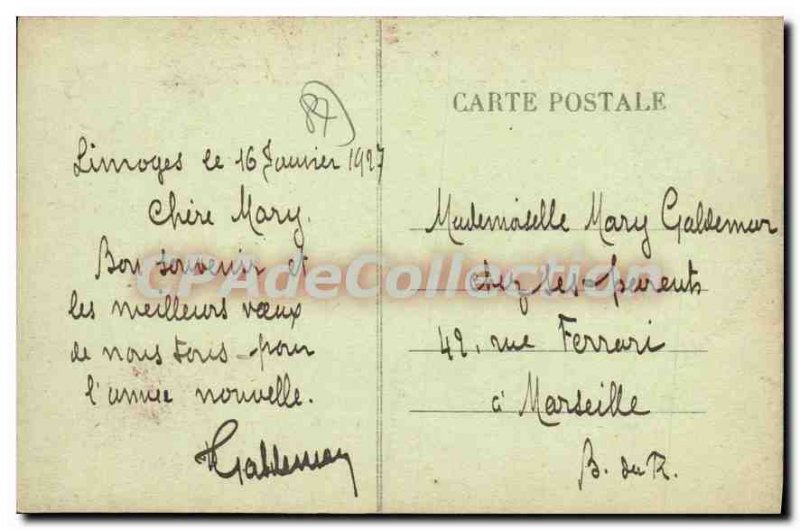 87
Limoges le 16 Janvier 1927
Chère Mary.
Bon souvenir et
les meilleurs vœux
de nous tous pour
l'année nouvelle.
Galdemar
CARTE POSTALE
Mademoiselle Mary Galdemar
chez ses parents
42, rue Ferrari
à Marseille
B. du R.
CPAdeCollection